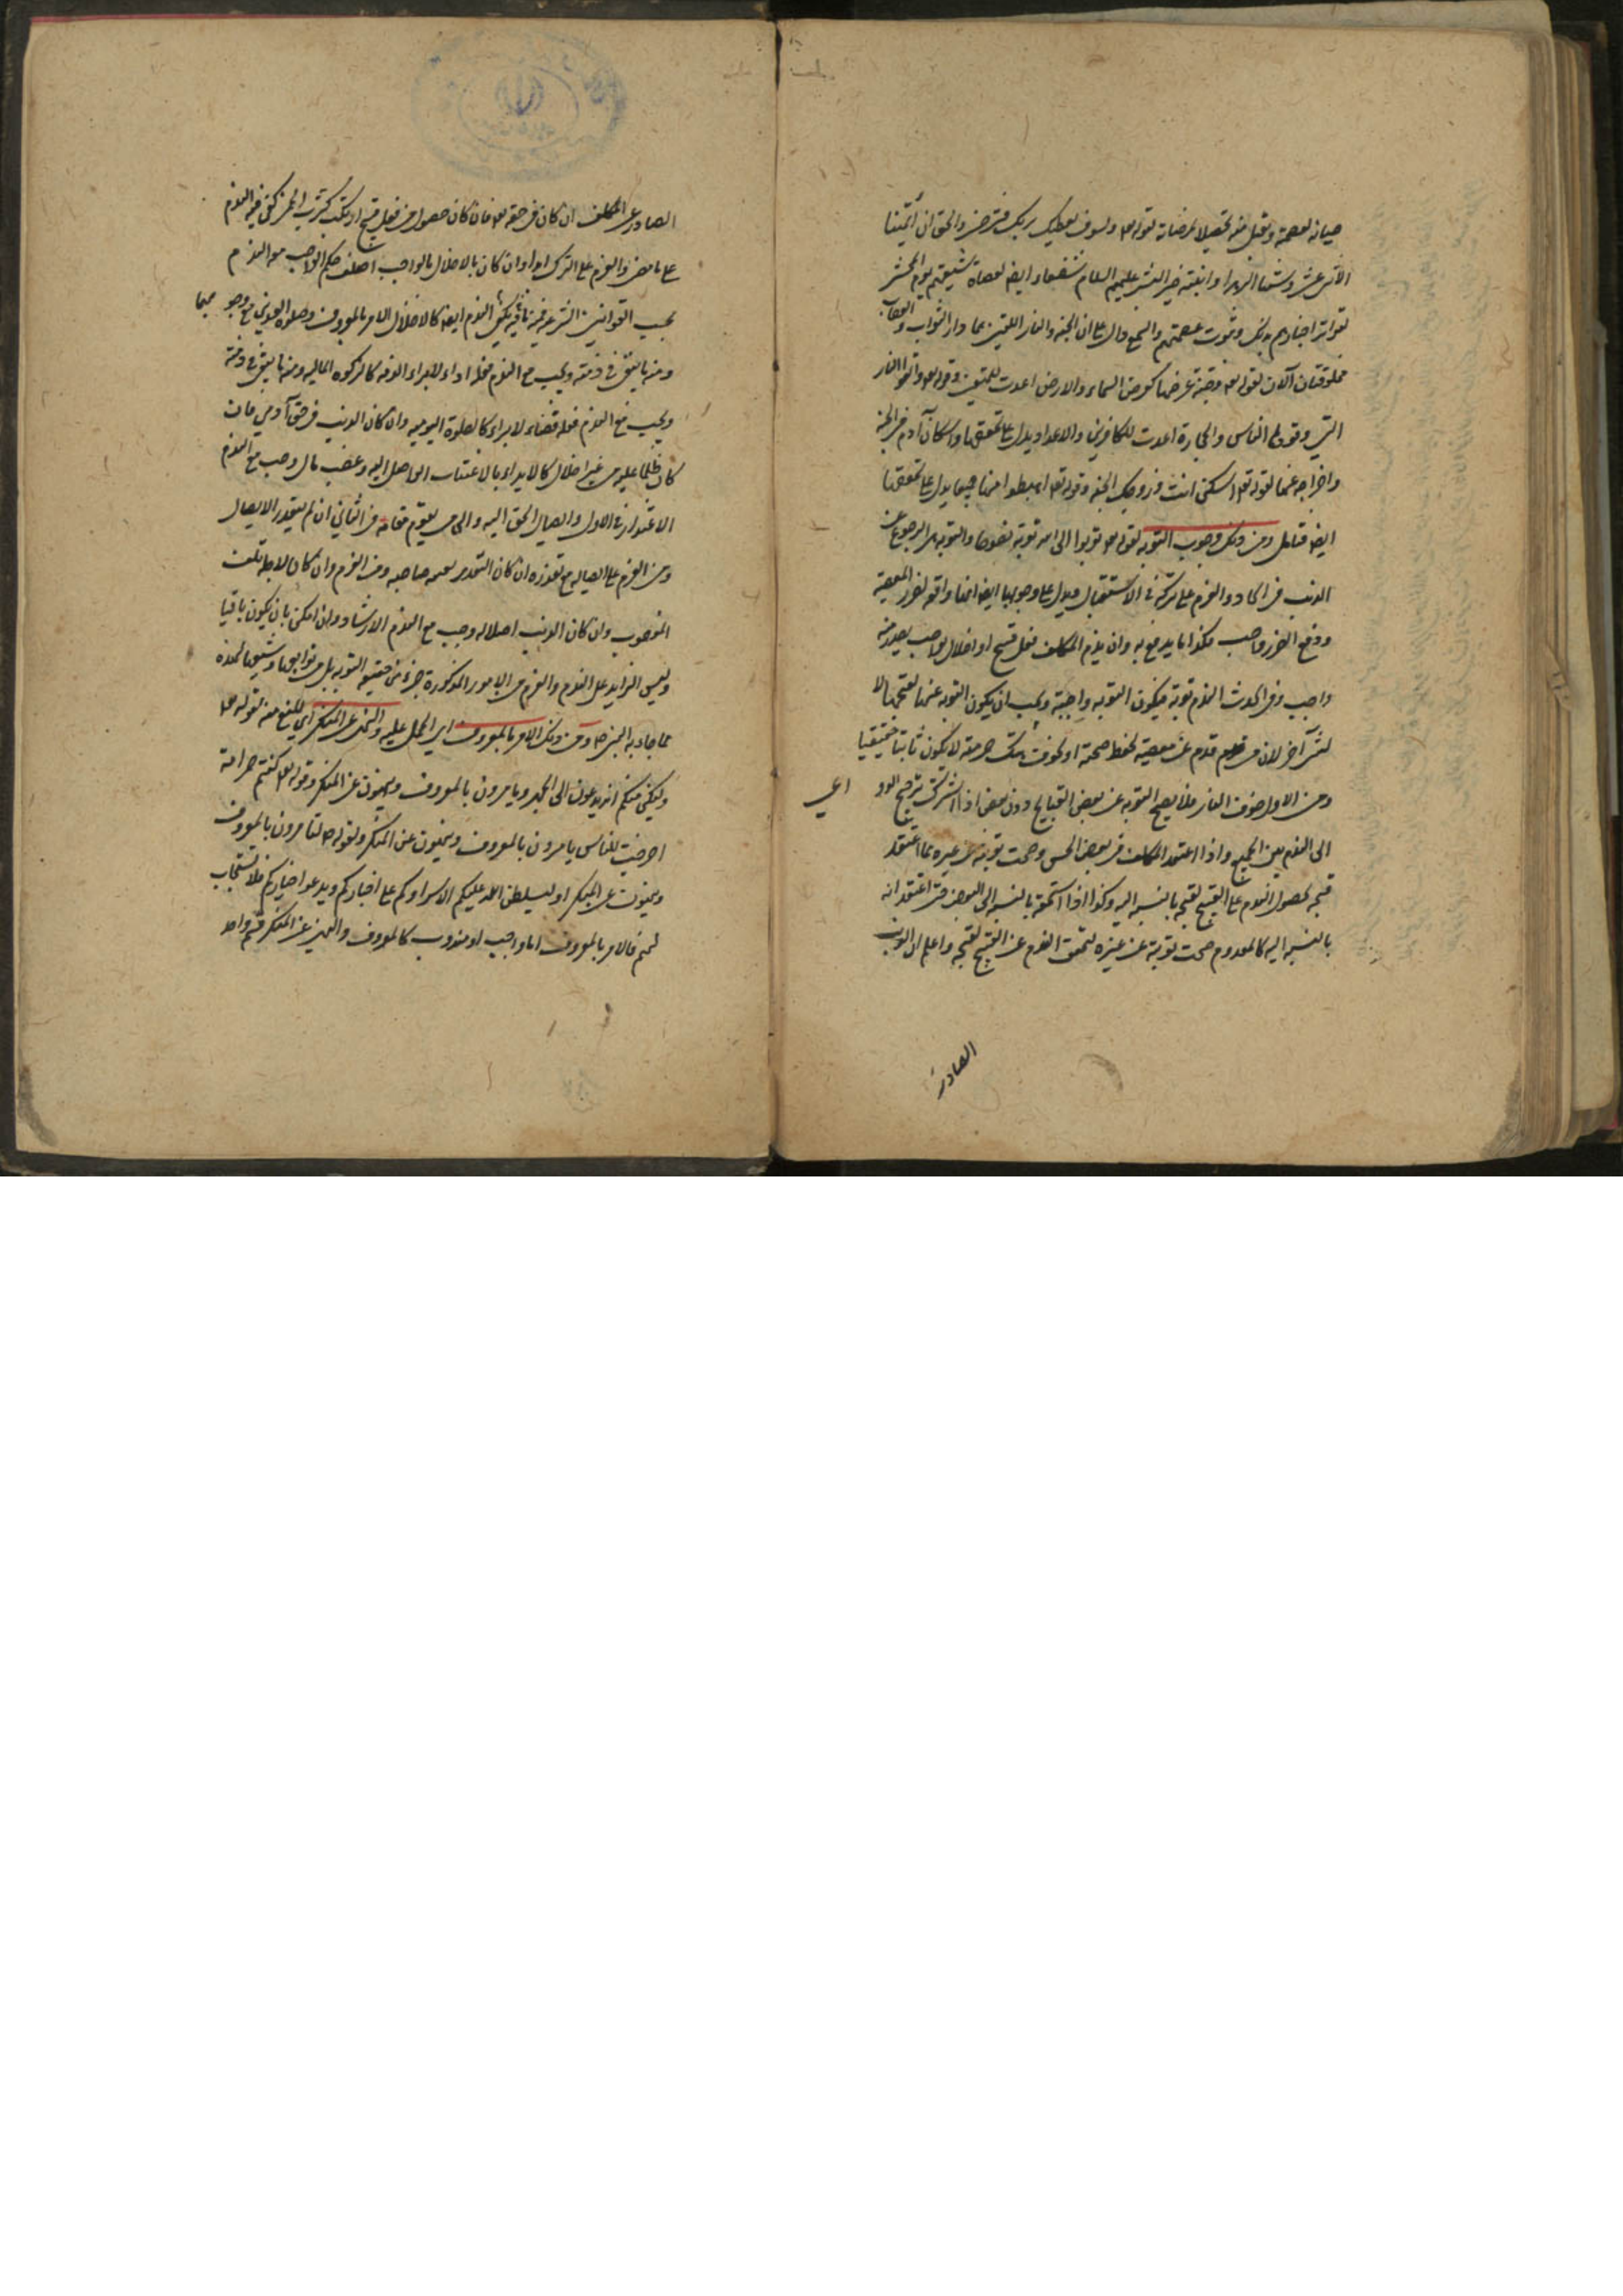 صيانة لعصمة ويقبل منه تحصيلا لمرضاته لقوله تعه ولسوف يعطيك ربك فترضى والحق ان أئمتنا
الاثنى عشر وستنا الزهراء وابنته خير البشر عليهم السلام شفعاء ايضا لعصاة شيعتهم يوم المحشر
لتواتر اخبارهم بذلك وثبوت عصمتهم والسمع دال على ان الجنة والنار اللتين هما دار الثواب والعقاب
مخلوقتان الآن لقوله تعه وجنة عرضها كعرض السماء والارض اعدت للمتقين وقوله تعه واتقوا النار
التي وقودها الناس والحجارة اعدت للكافرين والاعداد يدل على تحققها واسكان آدم في الجنة
واخراجه عنها لقوله تعه اسكن انت وزوجك الجنة وقوله تعه اهبطوا منها جميعا يدل على تحققها
ايضا فتامل ومن ذلك وجوب التوبه لقوله تعه توبوا الى الله توبة نصوحا والتوبه هى الرجوع عن
الذنب فى الحال والعزم على تركه فى الاستقبال ويدل على وجوبها ايضا انها دافعه لضرر المعصية
ودفع الضرر واجب فكذا ما يدفع به وان يذم المكلف فعل قبيح او اخلال بواجب يصدر منه
واجب وفى الحدث الندم توبة فيكون التوبه واجبة ويجب ان يكون التوبة عنها لقبحها لا
لشئ آخر لان من ندم عن معصية لحفظ صحته او لخوف هتك حرمته لا يكون تائبا حقيقيا
ومن الاول خوف النار فلا يصح التوبه عن بعض القبايح دون بعض اذا اشترك ترجيح الدو
اعى
الى الندم بين الجميع واذا اعتقد المكلف فى بعض الحسن وصحت توبته عن غيره مما اعتقد
قبحه لحصول الندم على القبيح لقبحه بالنسبه اليه وكذا اذا استحقر بالنسبه الى البعض حتى اعتقد انه
بالنسبه اليه كالمعدوم صحت توبته عن غيره لتحقق الندم عن القبيح لقبحه واعلم ان الذنب
الصادر
الصادر عن المكلف ان كان فى حقه تعه فان كان حصوله من فعل قبيح ارتكبه كشرب الخمر كفى فيه الندم
على ما مضى والعزم على الترك ابدا وان كان بالاخلال بالواجب اختلف حكم الواجب مع الندم
بحسب القوانين الشرعيه فمنه ما فيه يكفى الندم ايضا كالاخلال بالامر بالمعروف وصلوة العيدين مع وجوبهما
ومنه ما يبقى فى ذمته ويجب مع الندم فعله اداء لابراء الذمه كالزكوة الماليه ومنه ما يبقى فى ذمته
ويجب مع الندم فعله قضاء لابراء كالصلوة اليوميه وان كان الذنب فى حق آدمي فان
كان ظلما عليه من غير اضلال كالايذاء بالاغتياب الواصل اليه وغصب مال وجب مع الندم
الاعتذار فى الاول وايصال الحق اليه والى من يقوم مقامه فى الثاني ان لم يتعذر الايصال
ومن العزم على ايصاله مع تعذره ان كان التعذر لعدم صاحبه ومن العزم وان كان لاجل تلف
المغصوب وان كان الذنب اضلاله وجب مع الندم الارشاد وان امكن بان يكون باقيا
وليس الزايد على الندم والعزم من الامور المذكورة جزءا من حقيقة التوبه بل من توابعها وشيعها لهذه
مما جاء به النبى ص ومن ذلك الامر بالمعروف اى الحمل عليه والنهى عن المنكر اى المنع منه لقوله تعه
ولتكن منكم امة يدعون الى الخير ويامرون بالمعروف وينهون عن المنكر وقوله تعه كنتم خير امة
اخرجت للناس يامرون بالمعروف وينهون عن المنكر ولقوله ص لتامرون بالمعروف
وينهون عن المنكر او ليسلطن الله عليكم الاشراركم على اخياركم ويدعو اخياركم فلا يستجاب
لهم فالامر بالمعروف اما واجب او مندوب كالمعروف والنهى عن المنكر قسم واحد